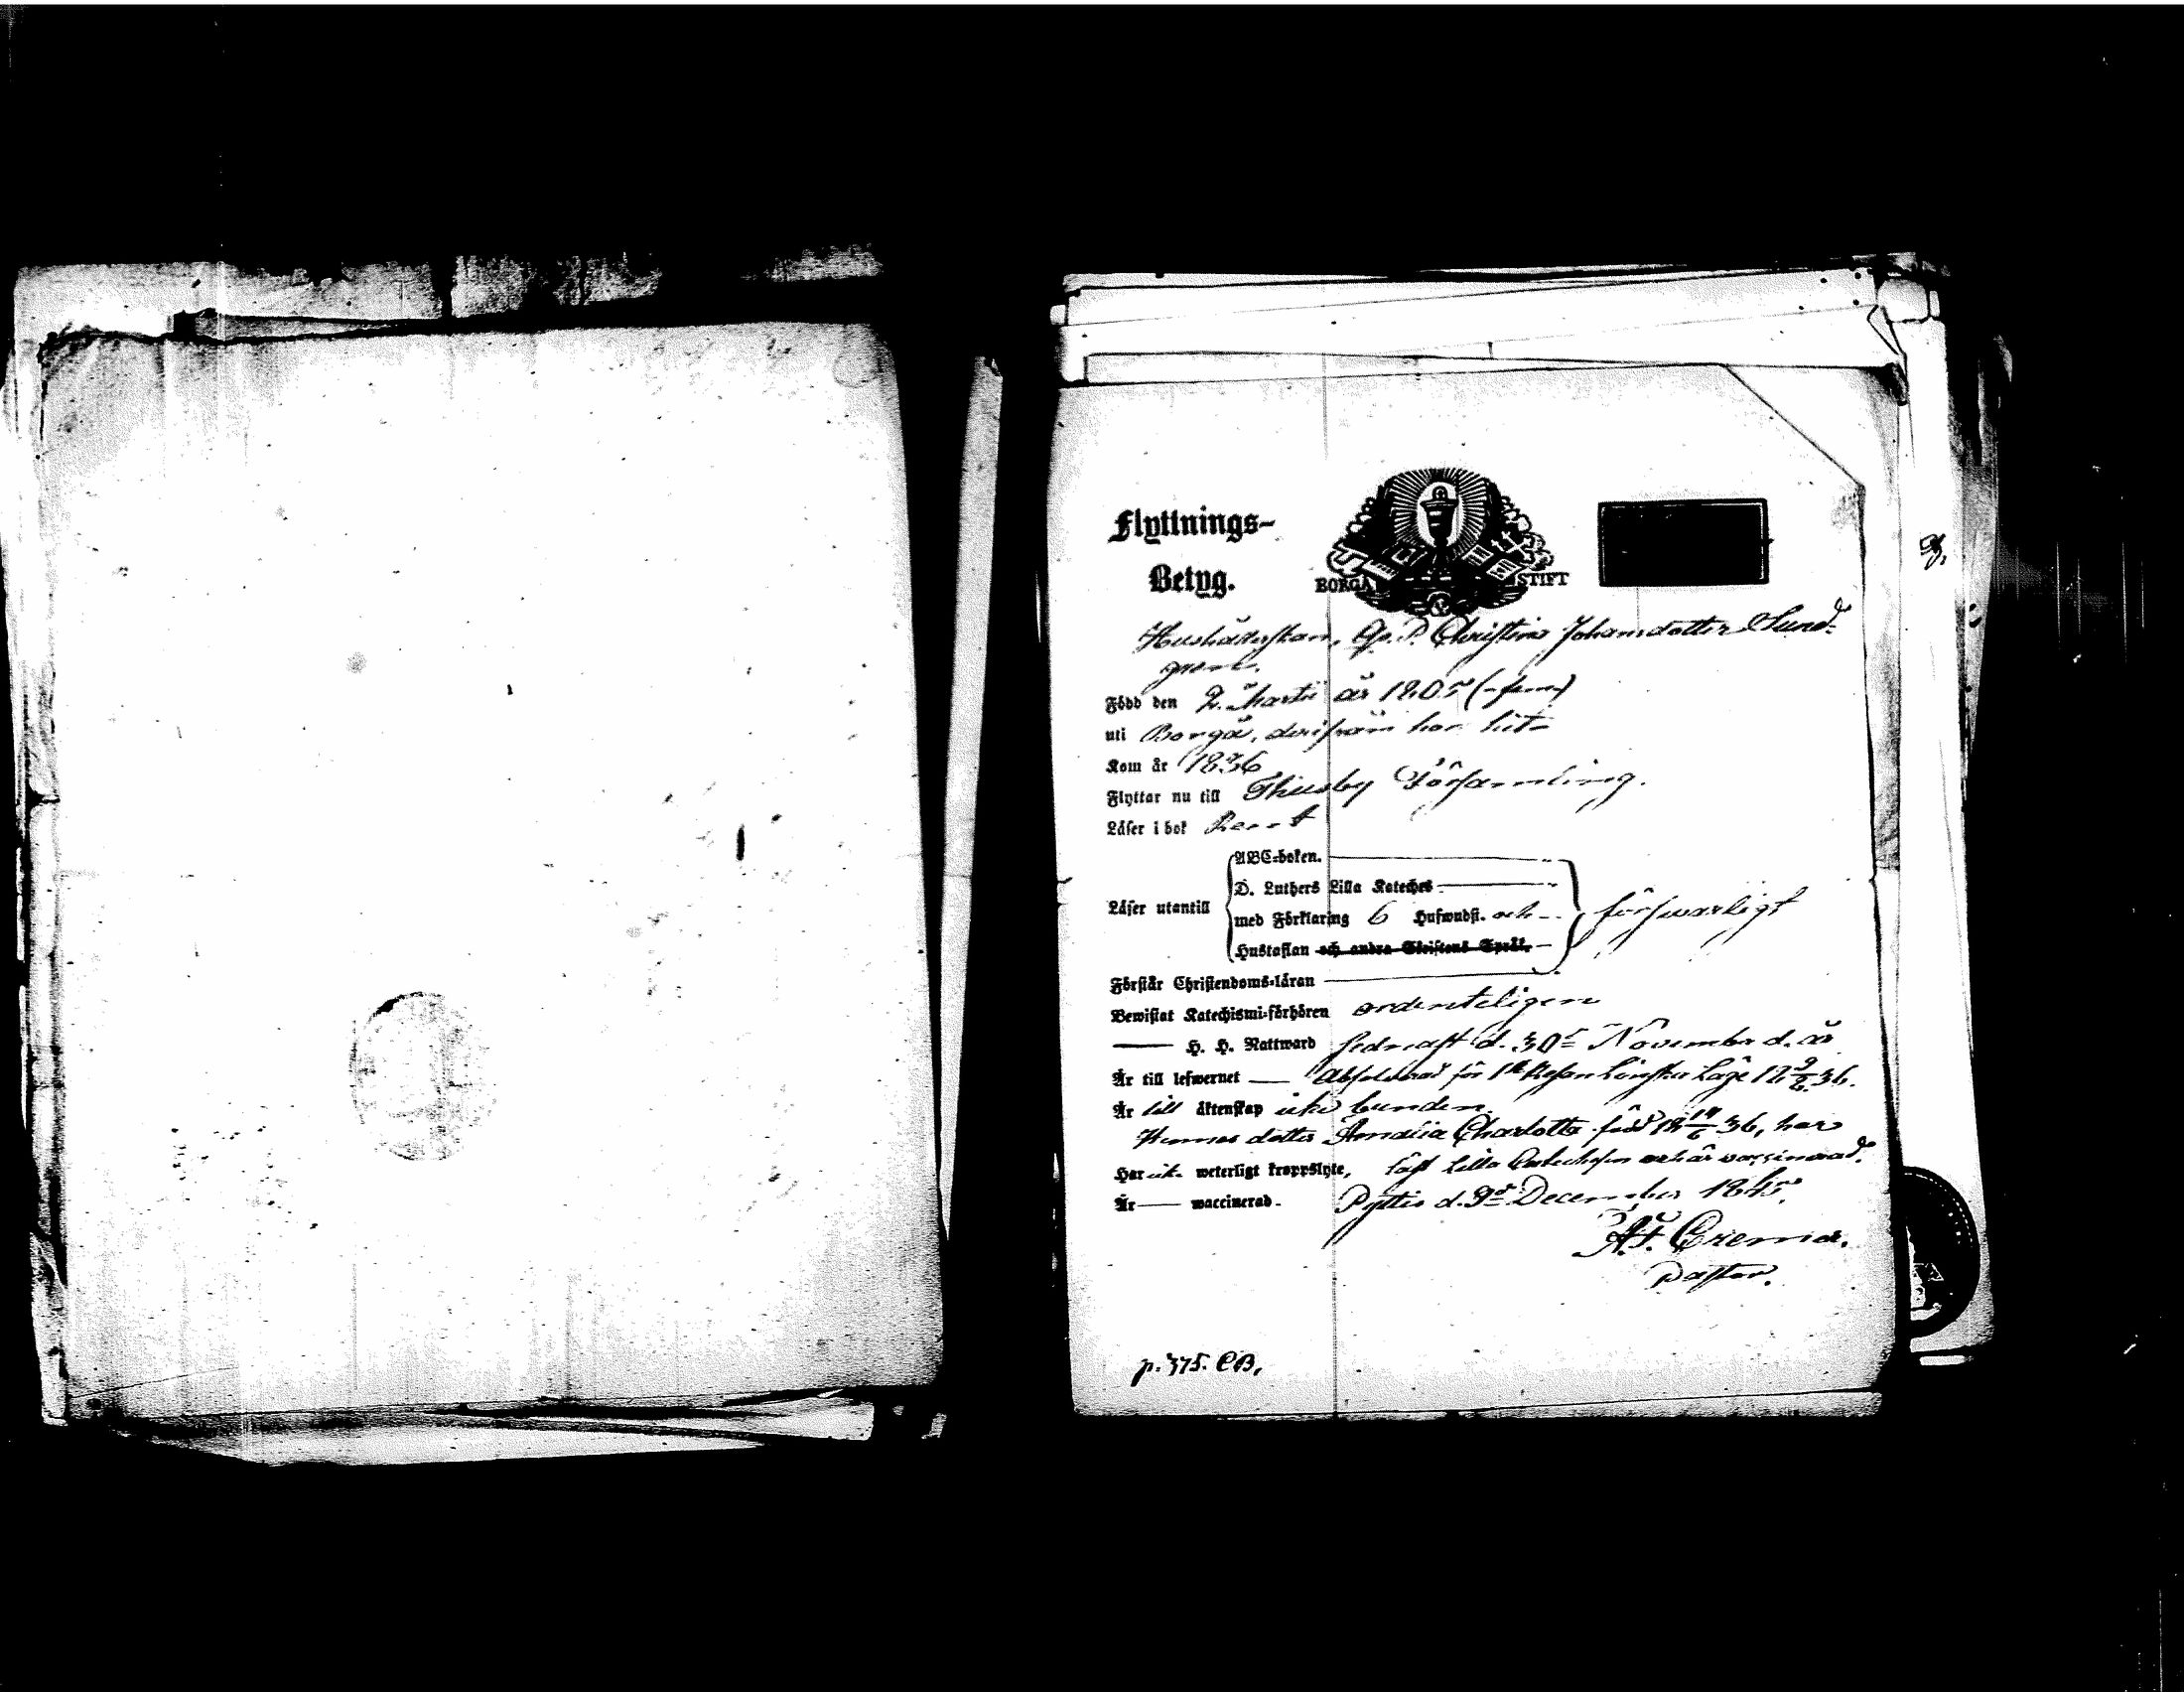 Flyttnings-
Betyg.
BORGÅ STIFT
Hushållerskan, Christina Johansdotter Sund-
gren.
Född den 2. Martii år 1805 (-fem)
uti Borgå, derifrån hon hit-
Kom år 1836
Flyttar nu till Thusby Församling.
Läser i bok Rent
ABC-boken.
D. Luthers Lilla Kateches
Läser utantill med Förklaring 6 Hufwudst. och försvarligt
Hustaflan och andra Christens Språk.
Förstår Christendoms-läran
Bewistat Katechismi-förhören ordenteligen
H. H. Nattward sednast d. 30 November d. år
Är till lefwernet Absolverad för 1sta resan Lönska Läge 18 9/2 36.
Är till äktenskap icke bunden.
Hennes dotter Amalia Charlotta född 18 14/6 36, har
Har icke weterligt kroppslyte, läst Lilla Catechesen och är vaccinerad.
Är waccinerad. Pyttis d. 9 December 1845.
Pastor.
p. 375. CB,